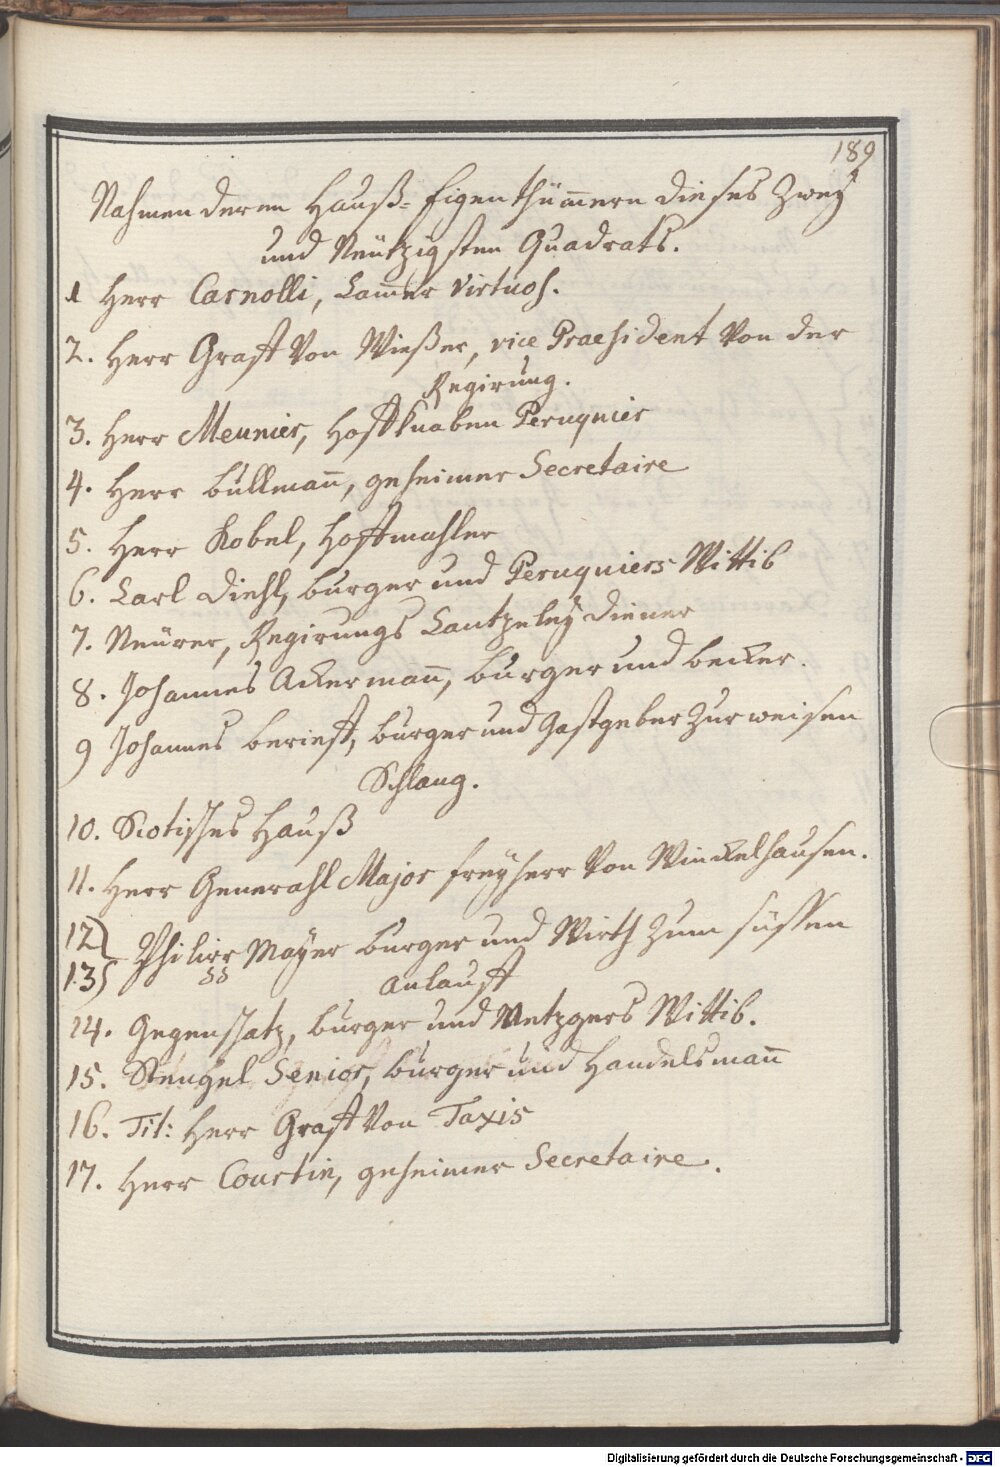 189
Nahmen deren Hauß-Eigenthüm̄ern dieses Zweÿ
und Neüntzigsten Quadrats.
1 Herr Carnolli, Cam̄er Virtuos.
2. Herr Graff Von Wießer, vice Praesident Von der
Regirung.
3. Herr Meunier, Hoffknaben Peruquier
4. Herr Büllman̄, geheimer Secretaire
5. Herr Kobel, Hoffmahler
6. Carl Diehl, burger und Peruquiers Wittib
7. Neürer, Regirungs Cantzeleÿ diener
8. Johannes Ackerman̄, burger und becker.
9 Johannes berieff, burger und Gastgeber Zur weisen
Schlang.
10. Scotisches Hauß
11. Herr Generahl Major freyherr Von Winckelhausen.
12)
13) Philipp Mayer burger und Wirth Zum süssen
anlauff
14. Gegenschatz, burger und Metzgers Wittib.
15. Stengel Senior, burger und Handelsman̄
16. Tit: Herr Graff Von Taxis
17. Herr Courtin, geheimer Secretaire.
Digitalisierung gefördert durch die Deutsche Forschungsgemeinschaft - DFG